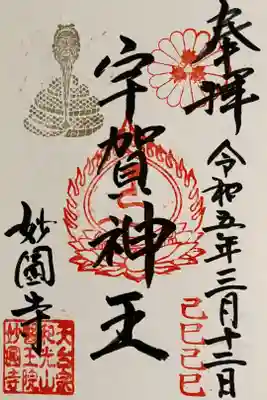 奉拝
令和五年三月十二日
己巳己巳
宇賀神王
妙圓寺
天台宗
和光山
明王院
妙圓寺